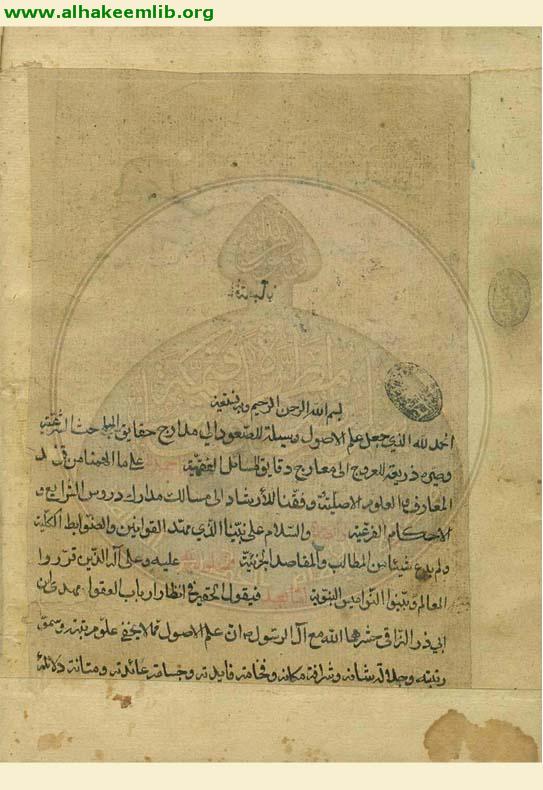 www.alhakeemlib.org
بسم الله الرحمن الرحيم وبه نستعين
الحمد لله الذي جعل علم الاصول وسيلة للصعود الى مدارج حقايق المباحث الشرعية
وصيره ذريعة للعروج الى معارج دقايق المسائل الفقهية على ما الهمنا من
المعارف و العلوم الاصلية ووفقنا للارشاد الى مسالك مدارك دروس الشرايع و
الاحكام الفرعية والسلام على نبينا الذي مهد القوانين والضوابط الكلية
ولم يدع شيئا من المطالب والمقاصد الجزئية عليه وعلى آله الذين قرروا
المعالم وبينوا النواميس النبوية اما بعد فيقول الحقير في انظار ارباب العقول مهدي بن
ابي ذر النراقي حشرهما الله مع آل الرسول ان علم الاصول مما لا يخفى علو مرتبته وسمو
رتبته وجلالة شانه وشرافة مكانه وفخامة فايدته وجسامة عائدته ومتانة دلائله